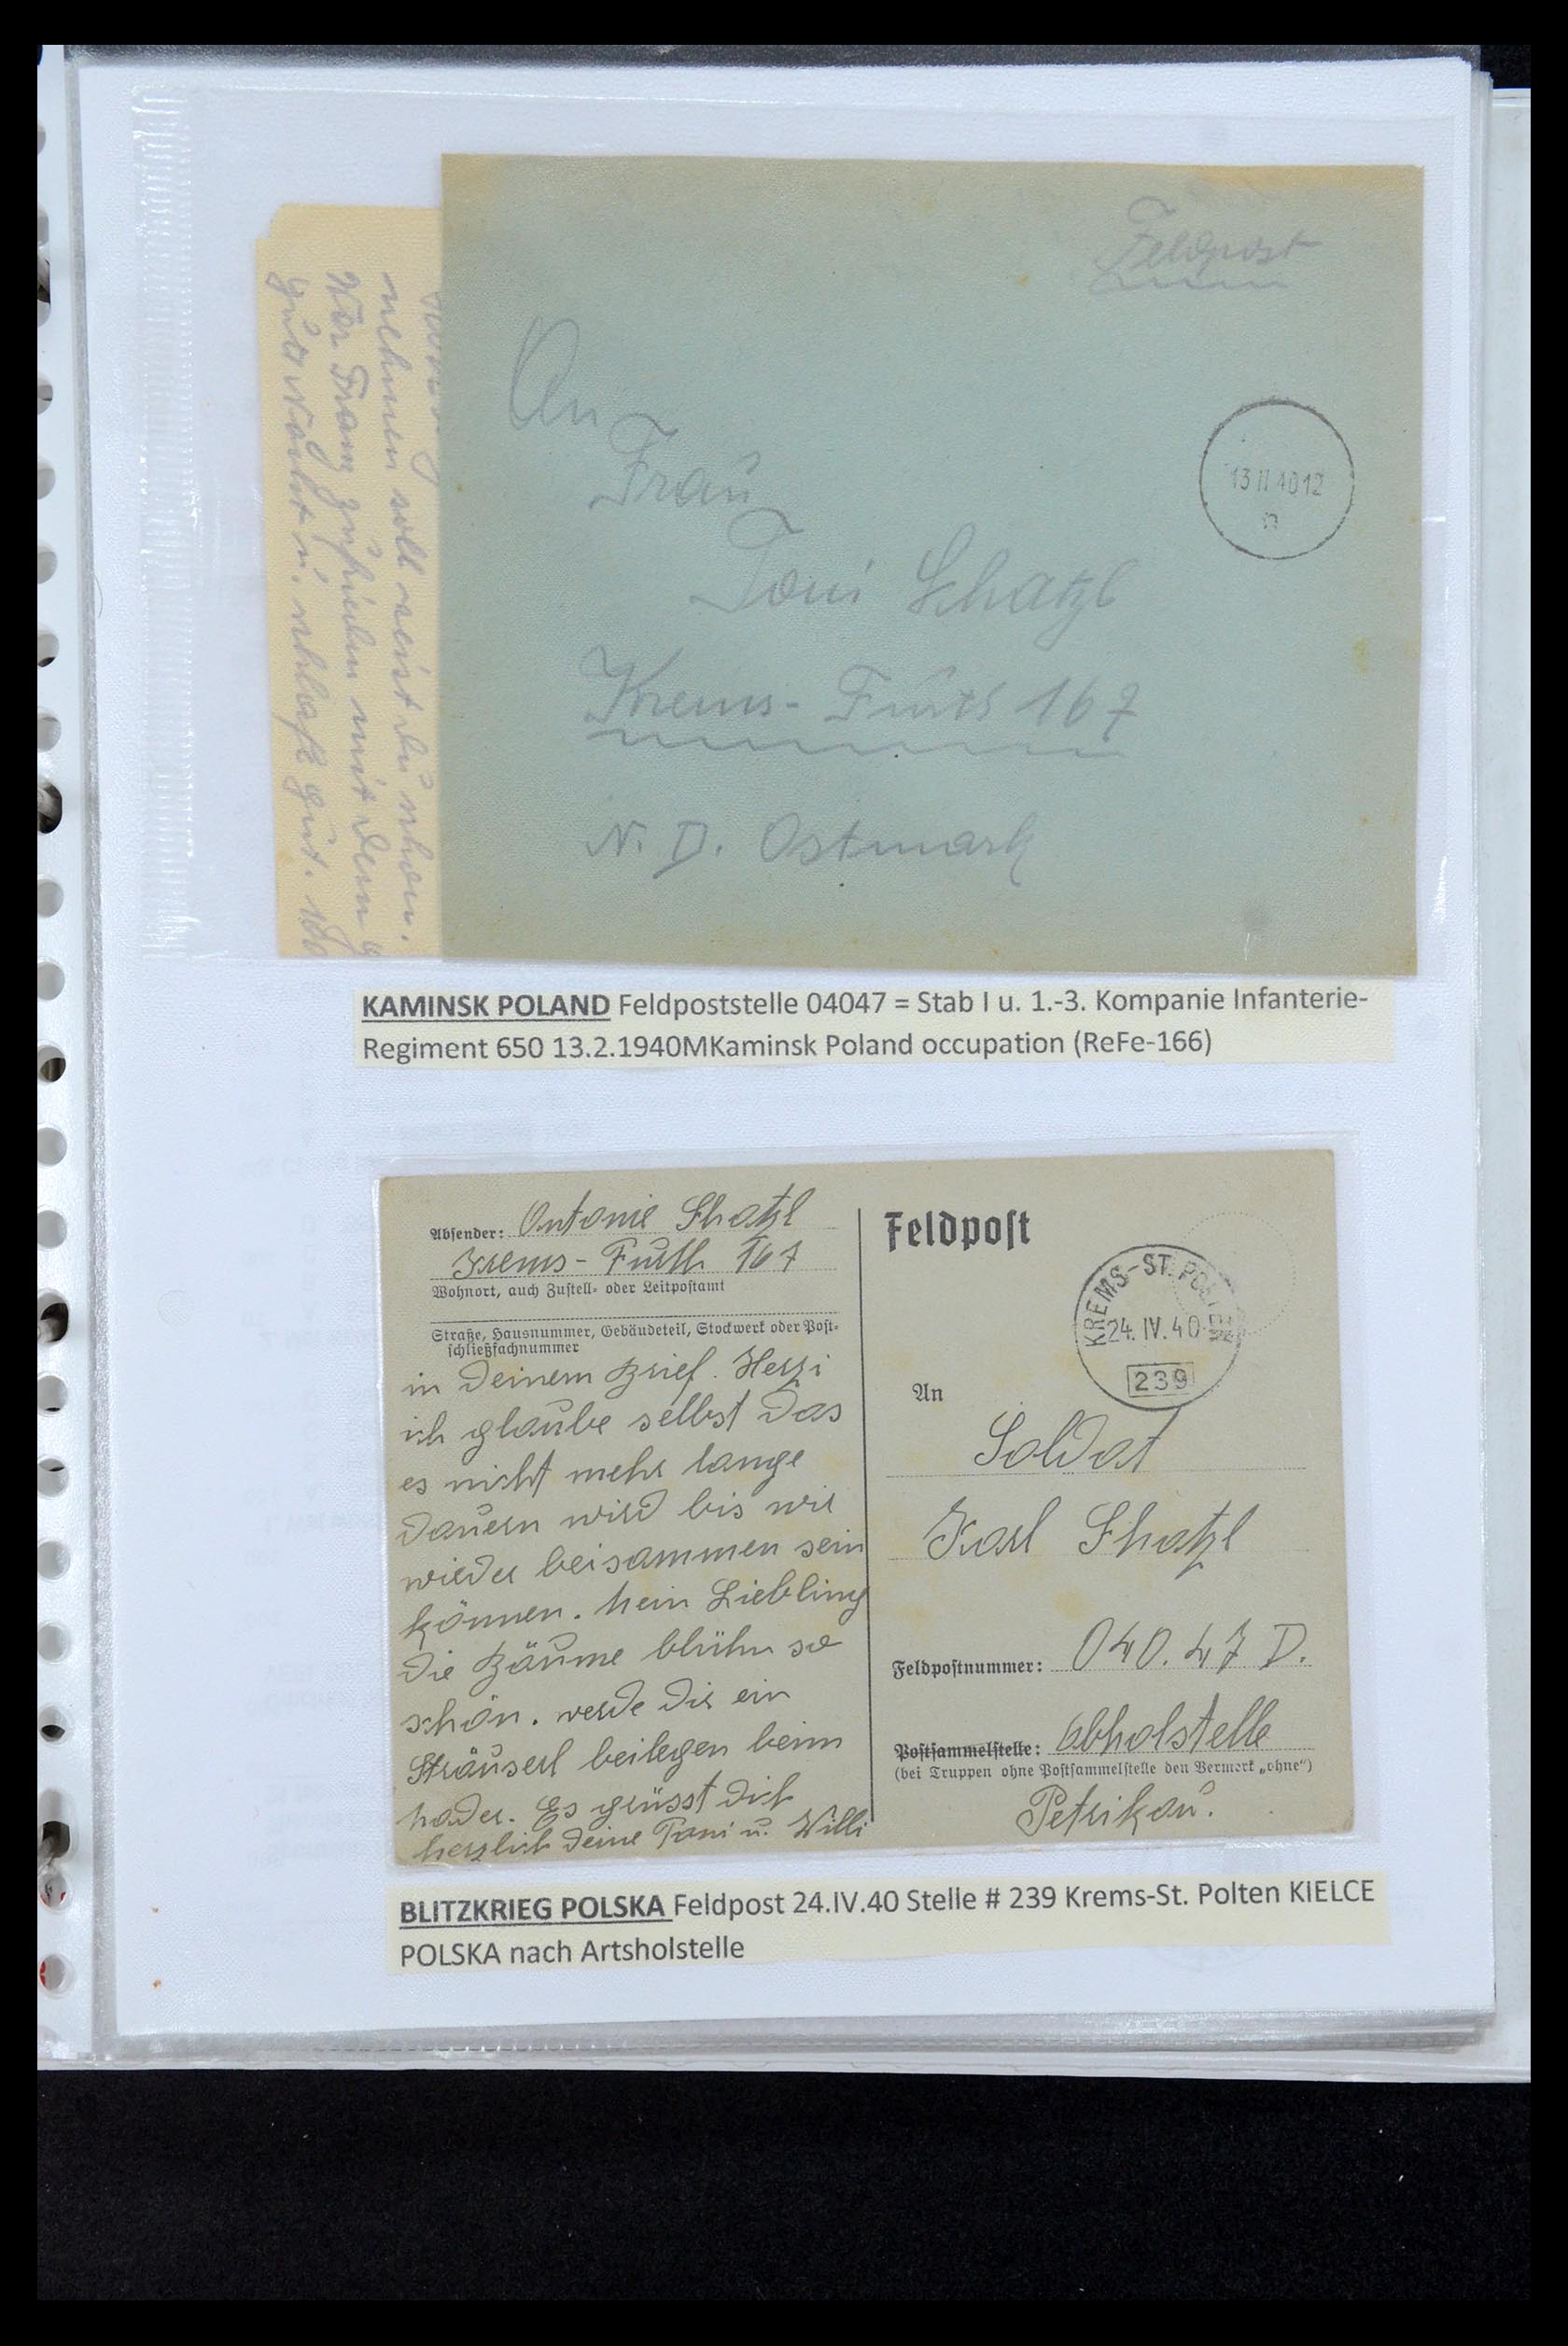 Feldpost
An
Frau
Toni Schatzl
Krems - Furth 167
N. D. Ostmark
13 II 40 12
a
nehmen soll weist du schon.
Wär Franz zufrieden mit dem
gute Nacht u. schlafe gut.
KAMINSK POLAND Feldpoststelle 04047 = Stab I u. 1.-3. Kompanie Infanterie-
Regiment 650 13.2.1940MKaminsk Poland occupation (ReFe-166)
Absender: Antonie Schatzl
Krems - Furth 167
Wohnort, auch Zustell- oder Leitpostamt
Straße, Hausnummer, Gebäudeteil, Stockwerk oder Post-
schließfachnummer
in Deinem Brief. Herzi
ich glaube selbst das
es nicht mehr lange
dauern wird bis wir
wieder beisammen sein
können. Mein Liebling
die Bäume blühn so
schön. werde dir ein
Sträuserl beilegen beim
nader. Es grüsst dich
herzlich deine Toni u. Willi
Feldpost
KREMS-ST. POELTEN
24. IV. 40
239
An
Soldat
Karl Schatzl
Feldpostnummer: 040.47 D.
Postsammelstelle: Abholstelle
(bei Truppen ohne Postsammelstelle den Vermerk „ohne“)
Petrikau.
BLITZKRIEG POLSKA Feldpost 24.IV.40 Stelle # 239 Krems-St. Polten KIELCE
POLSKA nach Artsholstelle